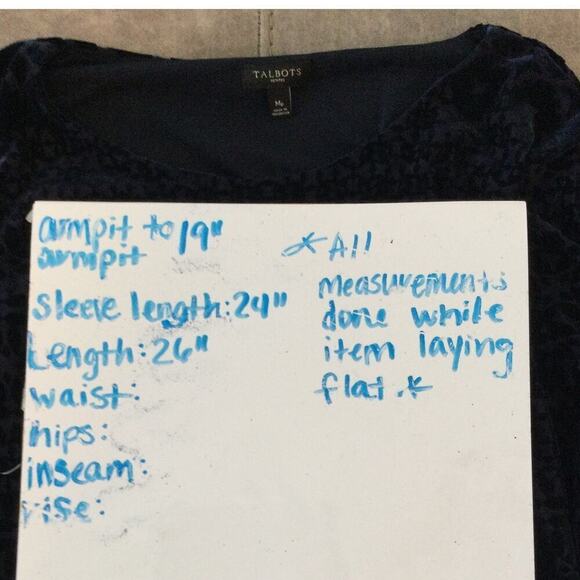 TALBOTS
PETITES
MP
armpit to 19"
armpit
sleeve length: 24"
Length: 26"
waist:
hips:
inseam:
rise:
*All
measurements
done while
item laying
flat.*